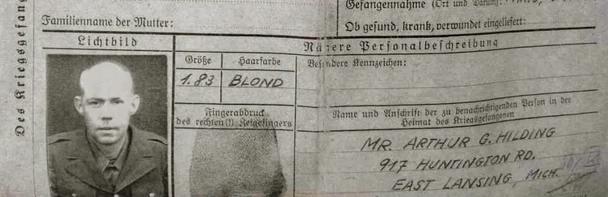 Des Kriegsgefang
Gefangennahme (Ort und
Familienname der Mutter:
Ob gesund, krank, verwundet eingeliefert:
Lichtbild
Nähere Personalbeschreibung
Größe
Haarfarbe
Besondere Kennzeichen:
1.83
BLOND
Fingerabdruck
des rechten (!) Zeigefingers
Name und Anschrift der zu benachrichtigenden Person in der
Heimat des Kriegsgefangenen
MR. ARTHUR G. HILDING
917 HUNTINGTON RD.
EAST LANSING, MICH.